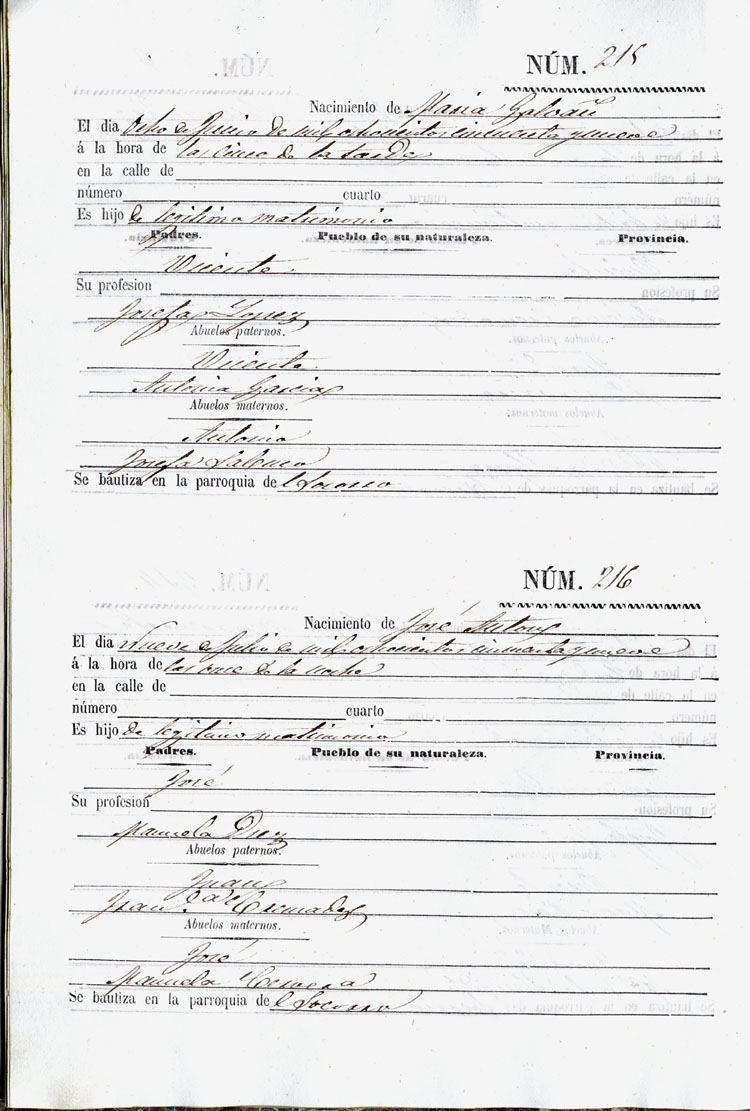 NÚM. 215
Nacimiento de Maria Galvañ
El dia Ocho de Junio de mil ochocientos cincuenta y nueve
á la hora de las cinco de la tarde
en la calle de
número cuarto
Es hijo de legitimo matrimonio
Padres. Pueblo de su naturaleza. Provincia.
Vicente
Su profesion
Josefa Lopez
Abuelos paternos.
Vicente
Antonia Garcia
Abuelos maternos.
Antonio
Josefa
Se bautiza en la parroquia de el Socorro
NÚM. 216
Nacimiento de José Antony
El dia Nueve de Julio de mil ochocientos cincuenta y nueve
á la hora de las once de la noche
en la calle de
número cuarto
Es hijo de legitimo matrimonio
Padres. Pueblo de su naturaleza. Provincia.
José
Su profesion
Manuela Diez
Abuelos paternos.
Juan
Fran.ca de Cremades
Abuelos maternos.
José
Manuela Cervera
Se bautiza en la parroquia de el Socorro